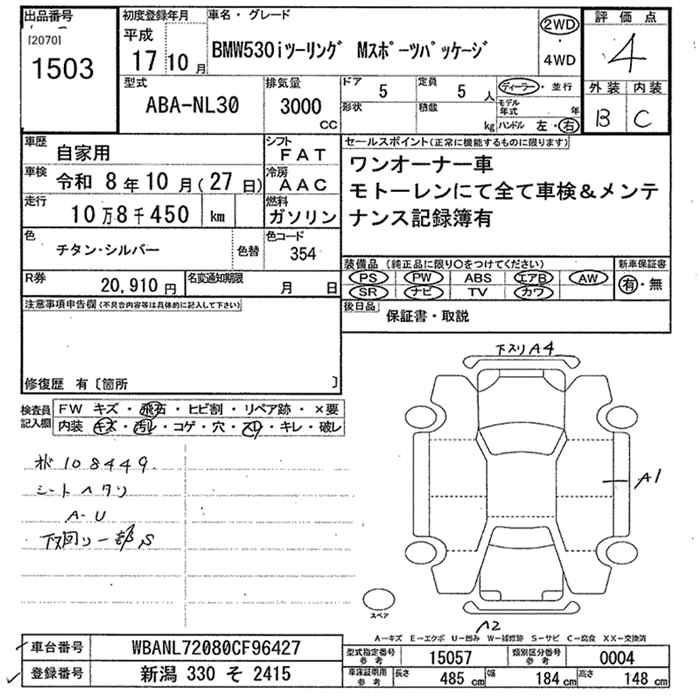 出品番号
[2070]
1503
初度登録年月
平成
17 10 月
車名・グレード
BMW530iツーリング Mスポーツパッケージ
2WD
・
4WD
評価点
4
外装 内装
B C
型式
ABA-NL30
排気量
3000
CC
ドア 5
形状
定員 5 人
積載 kg
ディーラー・並行
モデル年式 年
ハンドル 左・右
車歴
自家用
シフト
FAT
車検
令和 8年10月(27日)
冷房
AAC
走行
10万8千450 km
燃料
ガソリン
色
チタン・シルバー
色替
色コード
354
R券
20,910 円
名変通知期限
月 日
セールスポイント(正常に機能するものに限ります)
ワンオーナー車
モトーレンにて全て車検&メンテ
ナンス記録簿有
装備品 (純正品に限り○をつけてください)
PS PW ABS エアB AW
SR ナビ TV カワ
新車保証書
有・無
後日品
保証書・取説
注意事項申告欄(不具合内容等は具体的に記入して下さい)
修復歴 有〔箇所 〕
検査員
記入欄
FW キズ・飛石・ヒビ割・リペア跡・×要
内装 キズ・汚レ・コゲ・穴・スレ・キレ・破レ
108449
シートヘタリ
A-U
下回り一部S
下スリA4
A1
A2
スペア
A-キズ E-エクボ U-凹み W-補修跡 S-サビ C-腐食 XX-交換済
車台番号
WBANL72080CF96427
登録番号
新潟 330 そ 2415
型式指定番号
参考
15057
類別区分番号
参考
0004
車庫証明用
参考
長さ 485 cm
幅 184 cm
高さ 148 cm